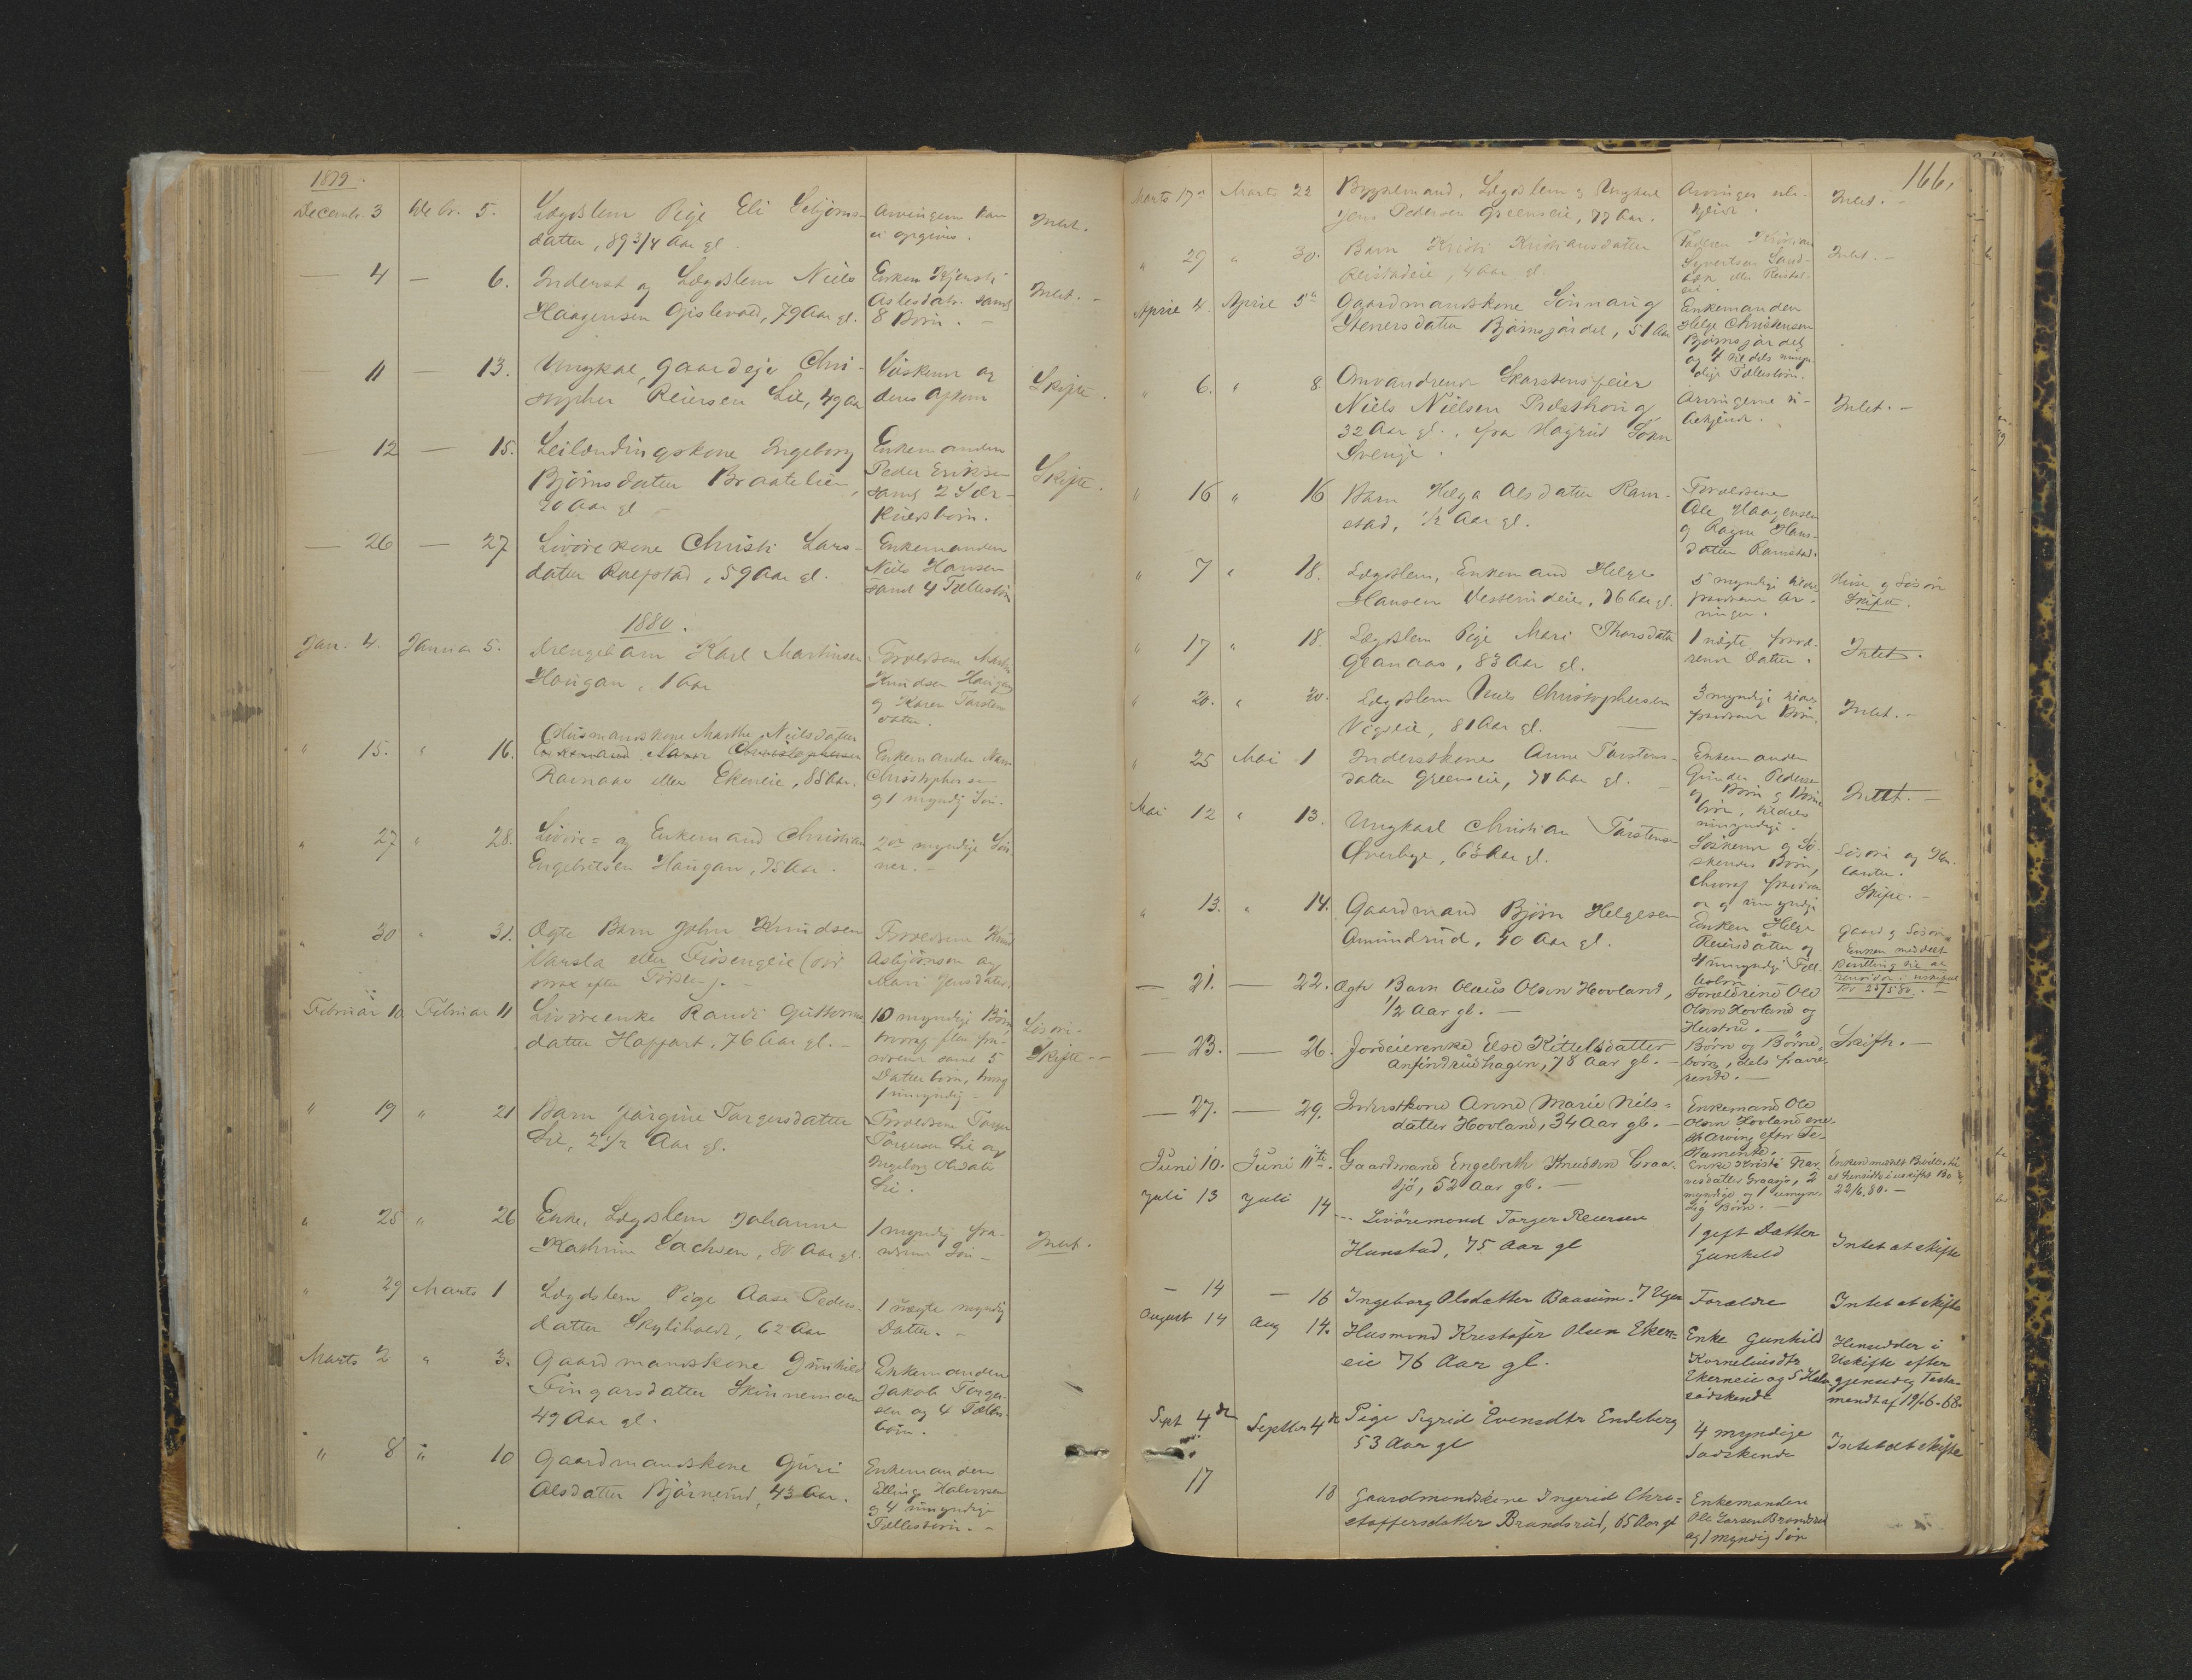 1879.
Decembr. 3 Debr. 5. Lægdslem Pige Eli
datter, 89 3/4 Aar gl.
Arvingern kan
ei opgives.
Intet.
— 4 — 6. Inderst og Lægdslem Niels
Haagensen Gislevold, 79 Aar gl.
Enken
Aslesdatr. samt
8 Börn. —
Intet. -
11 — 13. Ungkal, Gaardejer Chri-
stopher Reiersen Lie, 49 Aar
Söskenn og
deres Afkom
Skifte.
— 12 — 15. Leilændingskone Ingeborg
Björnsdatter Braatelien,
70 Aar gl -
Enkemanden
Peder Eriksen
samt 2 Sær-
kuldsbörn.
Skifte.
— 26 — 27 Livörekone Christi Lars-
datter Rolfstad, 59 Aar gl.
Enkemanden
Niels Hansen
samt 4 Fællesbörn
1880.
Jan. 4. Januar 5. Drengebarn Karl Martinsen
Haugan, 1 Aar
Forældrene Martin
Knudsen Haugan
og Karen Torstens-
datter.
" 15. " 16. Husmandskone Marthe Nielsdatter
Ramaas eller Ekerneie, 85 Aar.
Enkemanden
Christophersen
og 1 myndig Sön.
" 27 " 28. Livöre- og Enkemand Christian
Engebretsen Haugan, 75 Aar.
2de myndige Sön-
ner. -
" 30 " 31. Ægte Barn John Knudsen
Varsla eller Frösengeie
Forældrene Knud
Asbjörnsen og
Mari Jensdatter.
Februar 10 Februar 11 Livöreenke Randi Guttorms-
datter Hoffart, 76 Aar gl. -
10 myndige Börn
hvoraf flere fra-
værende samt 5
Datterbörn, hvoraf
1 umyndig -
Lösöre.
Skifte -
" 19 " 21 Barn Jörgine Torgersdatter
Lie, 2 1/2 Aar gl.
Forældrene Torger
Torgersen Lie og
Ingeborg Olsdatter
Lie.
" 25 " 26 Enke, Lægdslem Johanne
Kathrine Sachsen, 80 Aar gl.
1 myndig fra-
værende Sön -
Intet.
" 29 Marts 1 Lægdslem Pige Aase Peders-
datter, 62 Aar
1 uægte myndig
Datter. -
Marts 2 " 3. Gaardmandskone Gunhild
Fingarsdatter Skinnemoen
49 Aar gl.
Enkemanden
Jakob Torger-
sen og 4 Fælles-
börn.
" 8 " 10 Gaardmandskone Guri
Olsdatter Björnerud, 43 Aar.
Enkemanden
Elling Halvorsen
og 4 umyndige
Fællesbörn. -
166.
Marts 17 Marts 22 Bygselmand, Lægdslem og Ungkarl
Jens Pedersen Greenseie, 77 Aar.
Arvinger ube-
kjendt.
Intet. -
" 29 " 30. Barn Kristi Kristiansdatter
Reistadeie, 4 Aar gl.
Faderen Kristian
Syvertsen Sand-
eller Reistad-
eie.
Intet. -
April 4. April 5te Gaardmandskone Sönnaug
Stenersdatter Björnsjordet, 51 Aar
Enkemanden
Helge Christensen
Björnsjordet
og 4 tildels umyn-
dige Fællesbörn.
" 6. " 8. Omvandrende Skorstensfeier
Niels Nielsen
32 Aar gl., fra Sokn
Sverige.
Arvingerne u-
bekjendt.
Intet. -
" 16 " 16 Barn Helga Olsdatter Ram-
stad, 1/2 Aar gl.
Forældrene
Ole Haagensen
og Ragne Hans-
datter Ramstad.
" 7 " 18. Lægdslem, Enkemand Helge
Hansen, 76 Aar gl.
5 myndige tildels
fraværende Ar-
vinger.
Huse og Lösöre
Skifte.
" 17 " 18. Lægdslem Pige Mari Thorsdatter
Glanaas, 83 Aar gl.
1 uægte fravæ-
rende Datter.
Intet.
" 20. " 20. Lægdslem Niels Christophersen
Vigseie, 81 Aar gl.
3 myndige tildels
fraværende Börn.
Intet. -
" 25 Mai 1 Inderstkone Anne Torstens-
datter Greenseie, 71 Aar gl.
Enkemanden
Gunder Pedersen
og Börn og Börne-
börn, tildels
umyndige.
Intet. -
Mai 12 " 13. Ungkarl Christian Torstensen
Överbye, 63 Aar gl.
Söskenn og Sö-
skendes Börn,
hvoraf fraværen-
de og umyndige
Lösöre og Kon-
tanter.
Skifte. -
" 13. " 14. Gaardmand Björn Helgesen
Amundrud, 40 Aar gl.
Enken Helge
Reiersdatter og
4 umyndige Fæl-
lesbörn
Gaard og Lösöre.
Enken meddelt
Bevilling til at
hensidde i uskiftet
Bo 22/5 80. -
— 21. — 22. Ægte Barn Olaus Olsen Hovland,
1/2 Aar gl. -
Forældrene Ole
Olsen Hovland og
Hustru. -
— 23. — 26. Jordeierenke Else Kittelsdatter
Anfindrudhagen, 78 Aar gl. -
Börn og Börne-
börn, dels fravæ-
rende. -
Skifte. -
— 27. — 29. Inderstkone Anne Marie Nils-
datter Hovland, 34 Aar gl. -
Enkemand Ole
Olsen Hovland ene-
ste Arving efter Te-
stamente.
Juni 10. Juni 11te. Gaardmand Engebreth Knudsen Graa-
sjö, 52 Aar gl. -
Enke Kristi Nar-
vesdatter Graasjö, 2
myndige og 1 umyn-
dig Börn. -
Enken meddelt Bevilln. til
at hensidde i uskiftet Bo
22/6. 80. -
Juli 13 Juli 14 Livöremand Torger Reiersen
Hunstad, 75 Aar gl
1 gift Datter
Gunhild
Intet at skifte
— 14 — 16 Ingeborg Olsdatter Baasum. 7 Uger
Forældre
Intet at skifte
August 14 Aug 14. Husmand Kristofer Olsen Eker-
eie 76 Aar gl.
Enke Gunhild
Korneliusdtr
Ekerneie og 5 Halv-
södskende
Hensidder i
Uskifte efter
gjensidig Testa-
mendt af 19/6-68.
Sept 4de Septbr 4de Pige Sigrid Evensdtr Endeberg
53 Aar gl
4 myndige
Södskende
Intet at skifte
17 18 Gaardmandskone Ingerid Chri-
stoffersdatter Brandsrud, 65 Aar gl
Enkemanden
Ole Larsen Brandsrud
og 1 myndig Sön